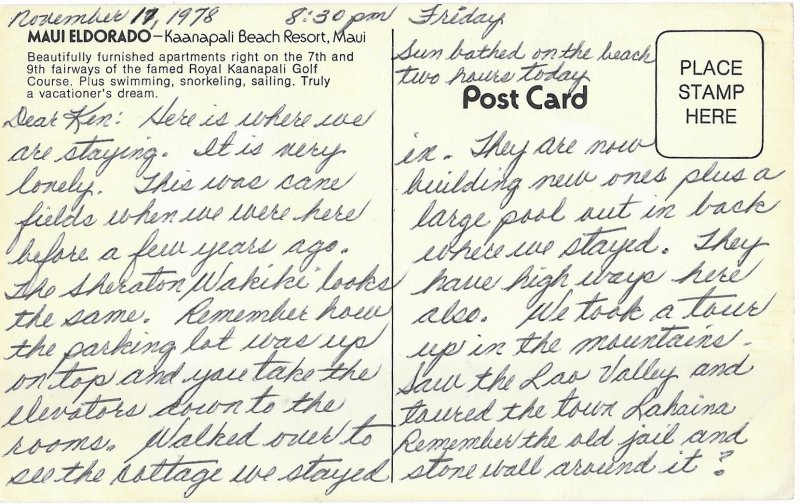 November 17, 1978 8:30 pm Friday
MAUI ELDORADO – Kaanapali Beach Resort, Maui
Beautifully furnished apartments right on the 7th and
9th fairways of the famed Royal Kaanapali Golf
Course. Plus swimming, snorkeling, sailing. Truly
a vacationer's dream.
Dear Ken: Here is where we
are staying. It is very
lovely. This was cane
fields when we were here
before a few years ago.
The Sheraton Wakiki looks
the same. Remember how
the parking lot was up
on top and you take the
elevators down to the
rooms. Walked over to
see the cottage we stayed
Sun bathed on the beach
two hours today
Post Card
PLACE
STAMP
HERE
in. They are now
building new ones plus a
large pool out in back
where we stayed. They
have high ways here
also. We took a tour
up in the mountains.
Saw the Lao Valley and
toured the town Lahaina
Remember the old jail and
stone wall around it?